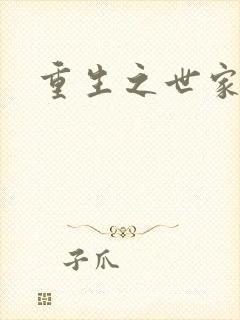 重生之世家
子爪